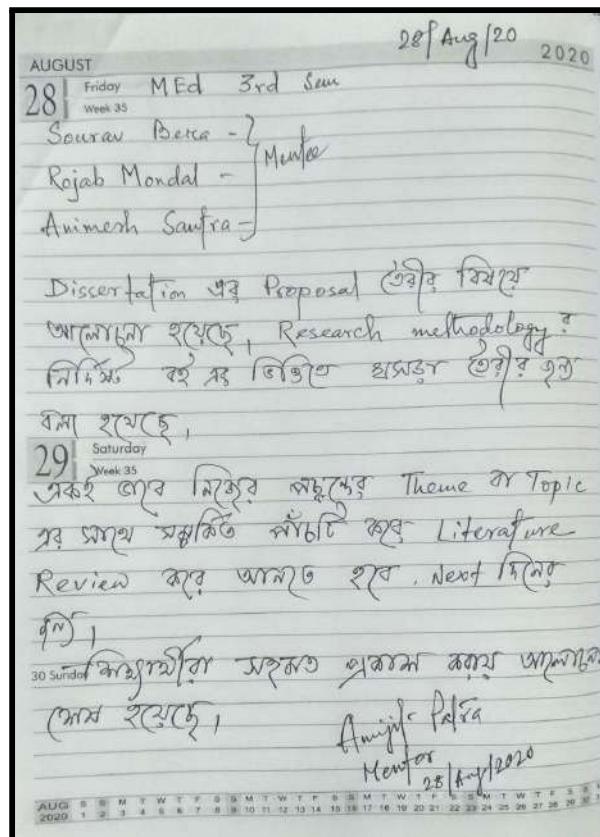 28/Aug/20
AUGUST 2020
28 Friday MEd 3rd Sem
Week 35
Sourav Bera -
Rojab Mondal - Mentee
Animesh Santra -
Dissertation এর Proposal তৈরীর বিষয়ে
আলোচনা হয়েছে, Research methodology র
নির্দিষ্ট বই এর ভিত্তিতে খসড়া তৈরীর জন্য
বলা হয়েছে,
29 Saturday
Week 35
একই ভাবে নিজের পছন্দের Theme বা Topic
এর সাথে সম্পর্কিত পাঁচটি করে Literature
Review করে আনতে হবে, Next দিনের
জন্য।
30 Sunday শিক্ষার্থীরা সহমত প্রকাশ করায় আলোচনা
শেষ হয়েছে।
Patra
Mentor
28/Aug/2020
AUG S S M T W T F S S M T W T F S S M T W T F S S M T W T F S S M
2020 1 2 3 4 5 6 7 8 9 10 11 12 13 14 15 16 17 18 19 20 21 22 23 24 25 26 27 28 29 30 31